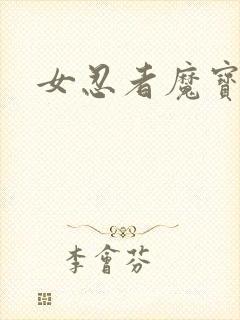 女忍者魔寶
李會芬